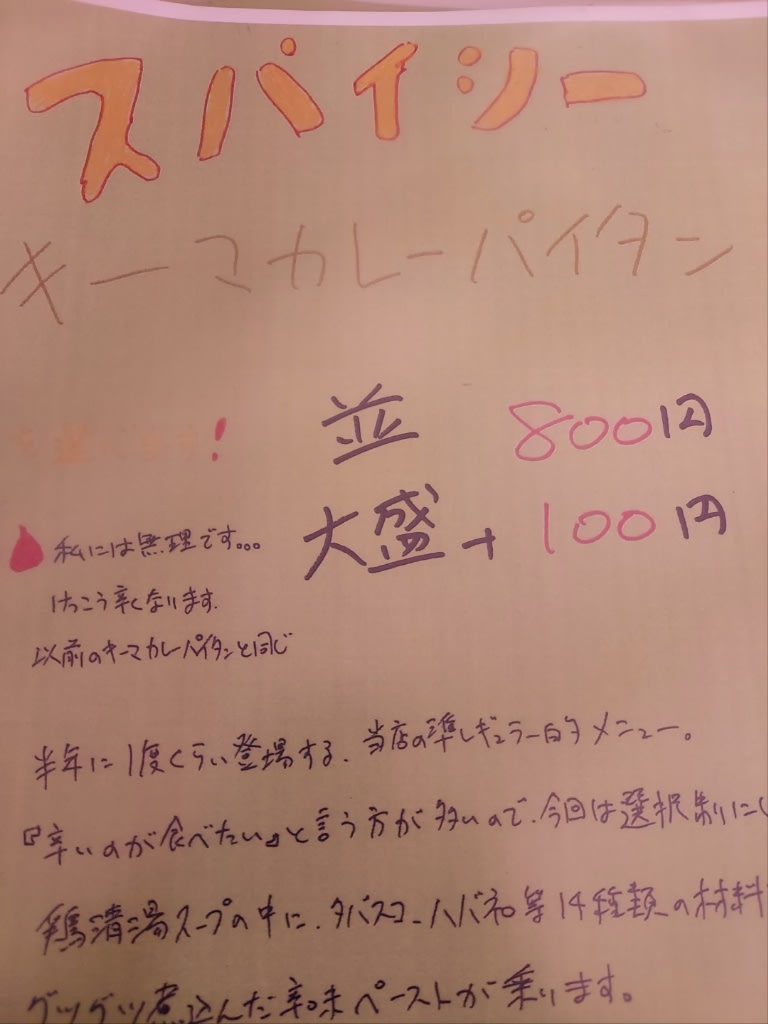 スパイシー
キーマカレーパイタン
を選べます!
並 800円
大盛 + 100円
私には無理です...
けっこう辛くなります.
以前のキーマカレーパイタンと同じ
半年に1度くらい登場する、当店の準レギュラー的メニュー。
『辛いのが食べたい』と言う方が多いので、今回は選択制にし
鶏清湯スープの中に、タバスコ、ハバネロ等14種類の材料
グツグツ煮込んだ辛味ペーストが乗ります。